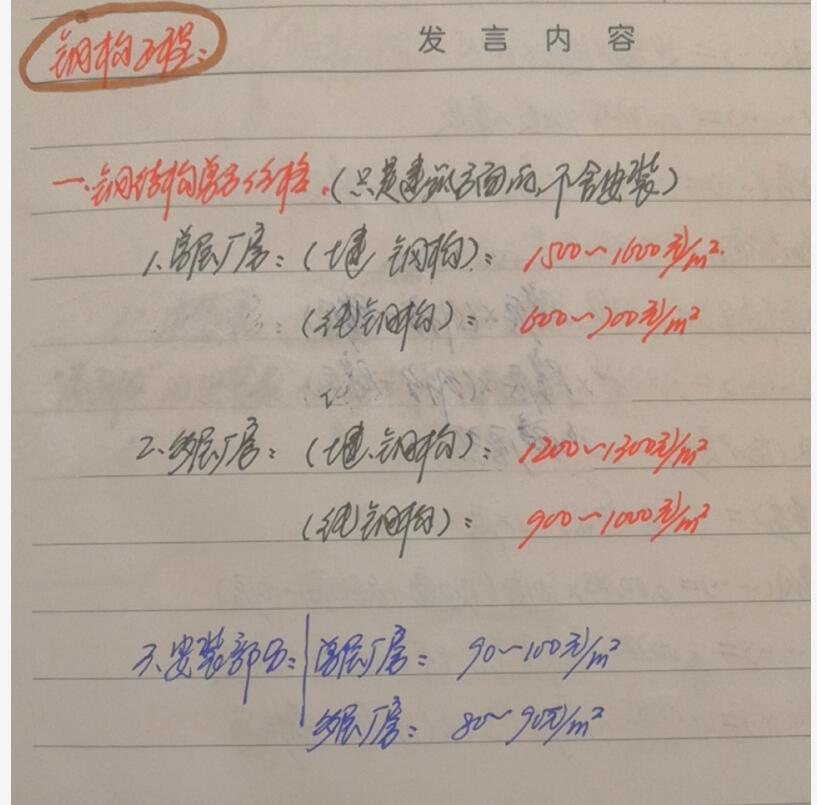 发言内容
钢构工程：
一、钢结构单方价格：（只是建筑方面的，不含安装）
1、单层厂房：（土建、钢构）：1500～1600元/m²
（纯钢构）：600～700元/m²
2、多层厂房：（土建、钢构）：1200～1300元/m²
（纯钢构）：900～1000元/m²
3、安装部分：单层厂房：90～100元/m²
多层厂房：80～90元/m²